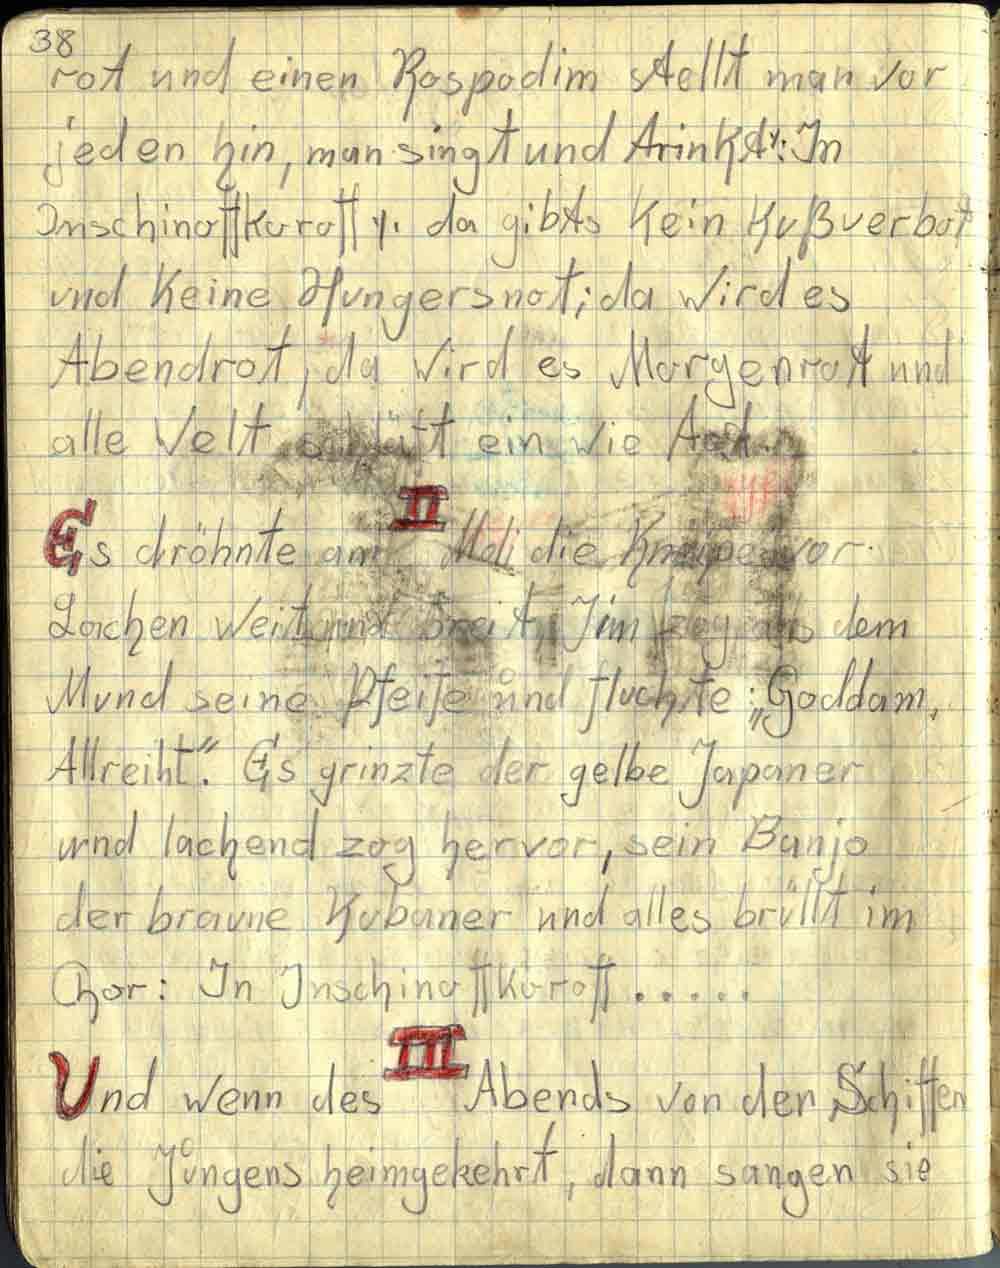 38
rot und einen Rospodim stellt man vor
jeden hin, man singt und trinkt: In
Inschinoffkoroff %. da gibts kein Kußverbot
und keine Hungersnot; da wird es
Abendrot, da wird es Morgenrot und
alle Welt schläft ein wie
II
Es dröhnte am die Kneipe vor
Lachen weit und breit, Jim zog aus dem
Mund seine Pfeife und fluchte: „Goddam,
Allreiht“. Es grinzte der gelbe Japaner
und lachend zog hervor, sein Banjo
der braune Kubaner und alles brüllt im
Chor: In Inschinoffkoroff . . . . .
III
Und wenn des Abends von den Schiffen
die Jungens heimgekehrt, dann sangen sie